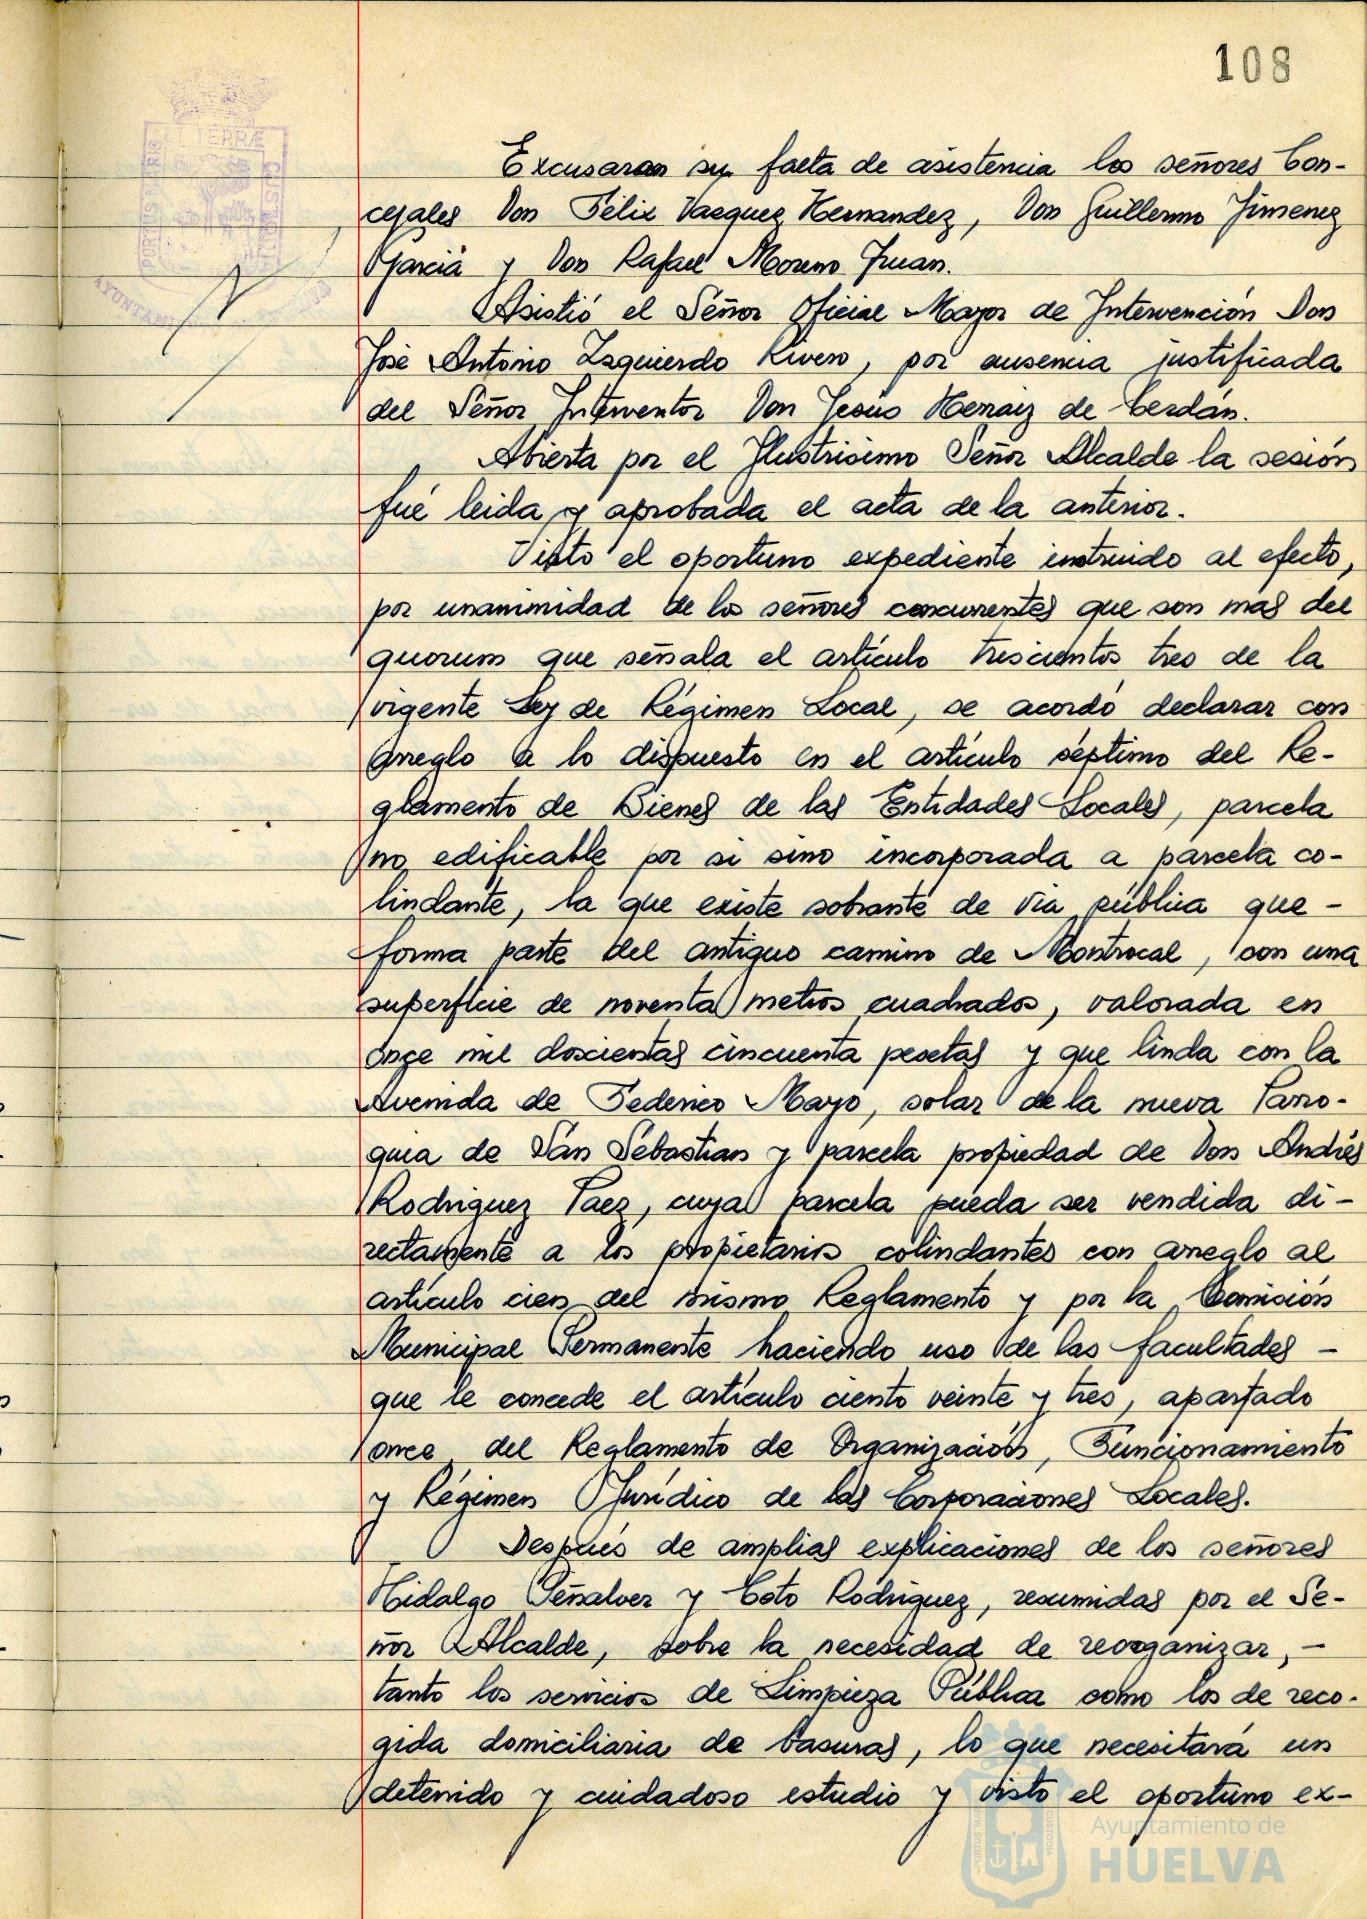 108
PORTUS MARIS
ET TERRÆ
CUSTODIA
Excusaron su falta de asistencia los señores Con-
cejales Don Félix Vazquez Hernandez, Don Guillermo Jimenez
Garcia y Don Rafael Moreno Juan.
Asistió el Señor Oficial Mayor de Intervención Don
José Antonio Izquierdo Rivero, por ausencia justificada
del Señor Interventor Don Jesús Herraiz de Cerdán.
Abierta por el Ilustrisimo Señor Alcalde la sesión
fué leida y aprobada el acta de la anterior.
Visto el oportuno expediente instruido al efecto,
por unanimidad de los señores concurrentes que son mas del
quorum que señala el artículo trescientos tres de la
vigente Ley de Régimen Local, se acordó declarar con
arreglo a lo dispuesto en el artículo séptimo del Re-
glamento de Bienes de las Entidades Locales, parcela
no edificable por si sino incorporada a parcela co-
lindante, la que existe sobrante de via pública que -
forma parte del antiguo camino de Montrocal, con una
superficie de noventa metros cuadrados, valorada en
once mil doscientas cincuenta pesetas y que linda con la
Avenida de Federico Mayo, solar de la nueva Parro-
quia de San Sebastian y parcela propiedad de Don Andrés
Rodriguez Paez, cuya parcela pueda ser vendida di-
rectamente a los propietarios colindantes con arreglo al
artículo cien del mismo Reglamento y por la Comisión
Municipal Permanente haciendo uso de las facultades -
que le concede el artículo ciento veinte y tres, apartado
once, del Reglamento de Organización, Funcionamiento
y Régimen Jurídico de las Corporaciones Locales.
Después de amplias explicaciones de los señores
Hidalgo Peñalver y Coto Rodriguez, resumidas por el Se-
ñor Alcalde, sobre la necesidad de reorganizar, -
tanto los servicios de Limpieza Pública como los de reco-
gida domiciliaria de basuras, lo que necesitará un
detenido y cuidadoso estudio y visto el oportuno ex-
Ayuntamiento de
HUELVA